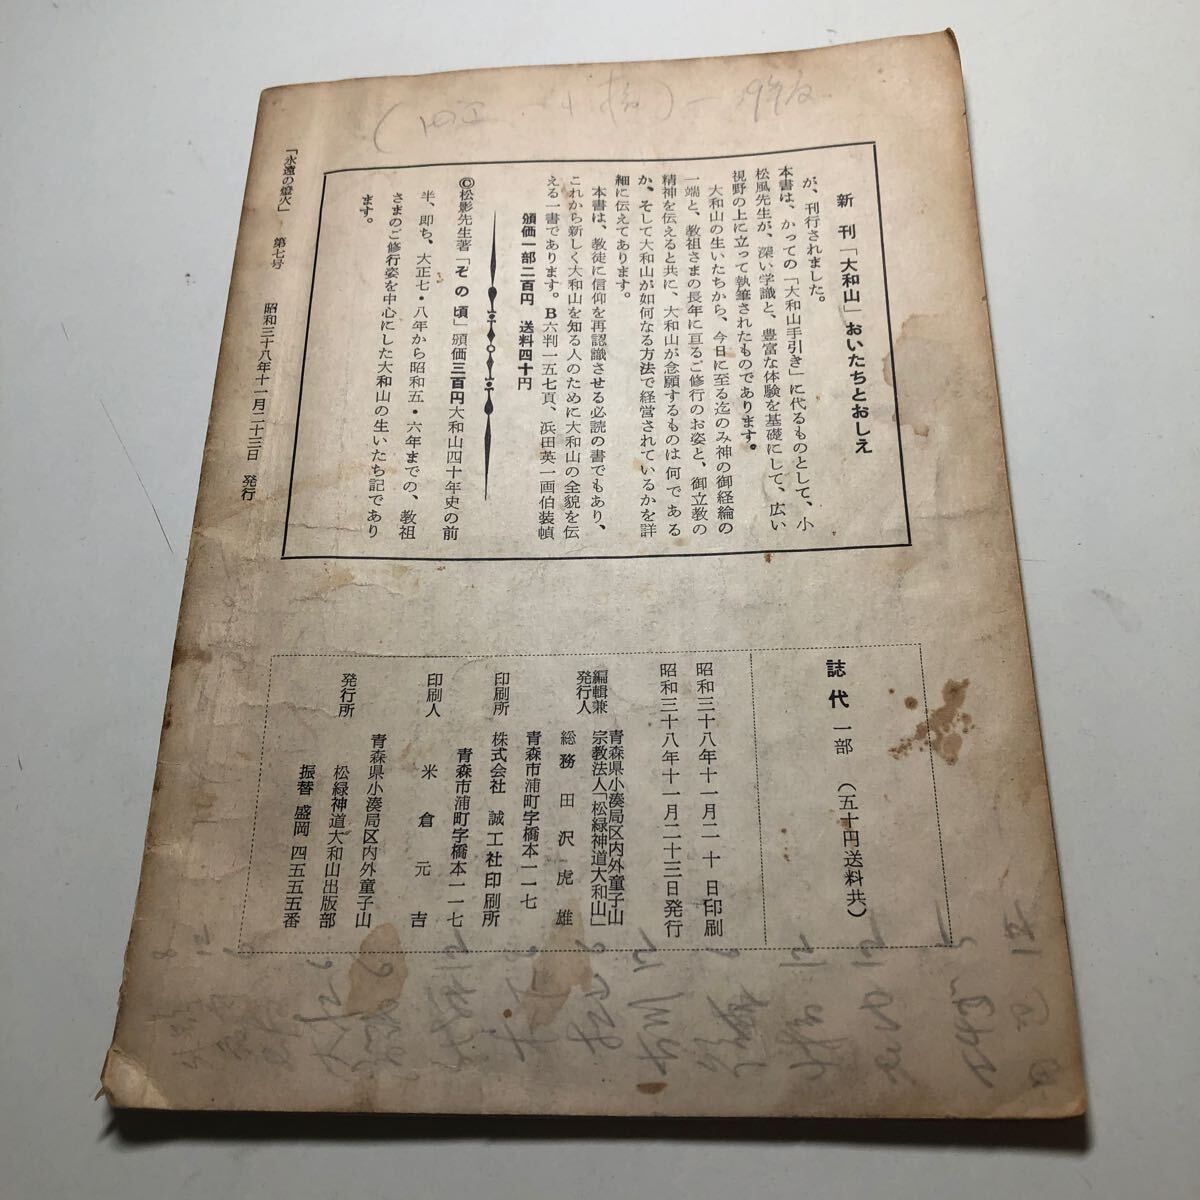 新刊「大和山」おいたちとおしえ
が、刊行されました。
本書は、かっての「大和山手引き」に代るものとして、小
松風先生が、深い学識と、豊富な体験を基礎にして、広い
視野の上に立って執筆されたものであります。
大和山の生いたちから、今日に至る迄のみ神の御経綸の
一端と、教祖さまの長年に亘るご修行のお姿と、御立教の
精神を伝えると共に、大和山が念願するものは何である
か、そして大和山が如何なる方法で経営されているかを詳
細に伝えてあります。
本書は、教徒に信仰を再認識させる必読の書でもあり、
これから新しく大和山を知る人のために大和山の全貌を伝
える一書であります。B六判一五七頁、浜田英一画伯装幀
頒価一部二百円 送料四十円
©松影先生著「その頃」頒価三百円大和山四十年史の前
半、即ち、大正七・八年から昭和五・六年までの、教祖
さまのご修行姿を中心にした大和山の生いたち記であり
ます。
「永遠の燈火」 第七号 昭和三十八年十一月二十三日 発行
誌代 一部 (五十円送料共)
昭和三十八年十一月二十日印刷
昭和三十八年十一月二十三日発行
編輯兼
発行人
青森県小湊局区内外童子山
宗教法人「松緑神道大和山」
総務 田沢虎雄
青森市浦町字橋本一一七
印刷所 株式会社 誠工社印刷所
青森市浦町字橋本一一七
印刷人 米倉元吉
発行所 青森県小湊局区内外童子山
松緑神道大和山出版部
振替 盛岡 四五五五番